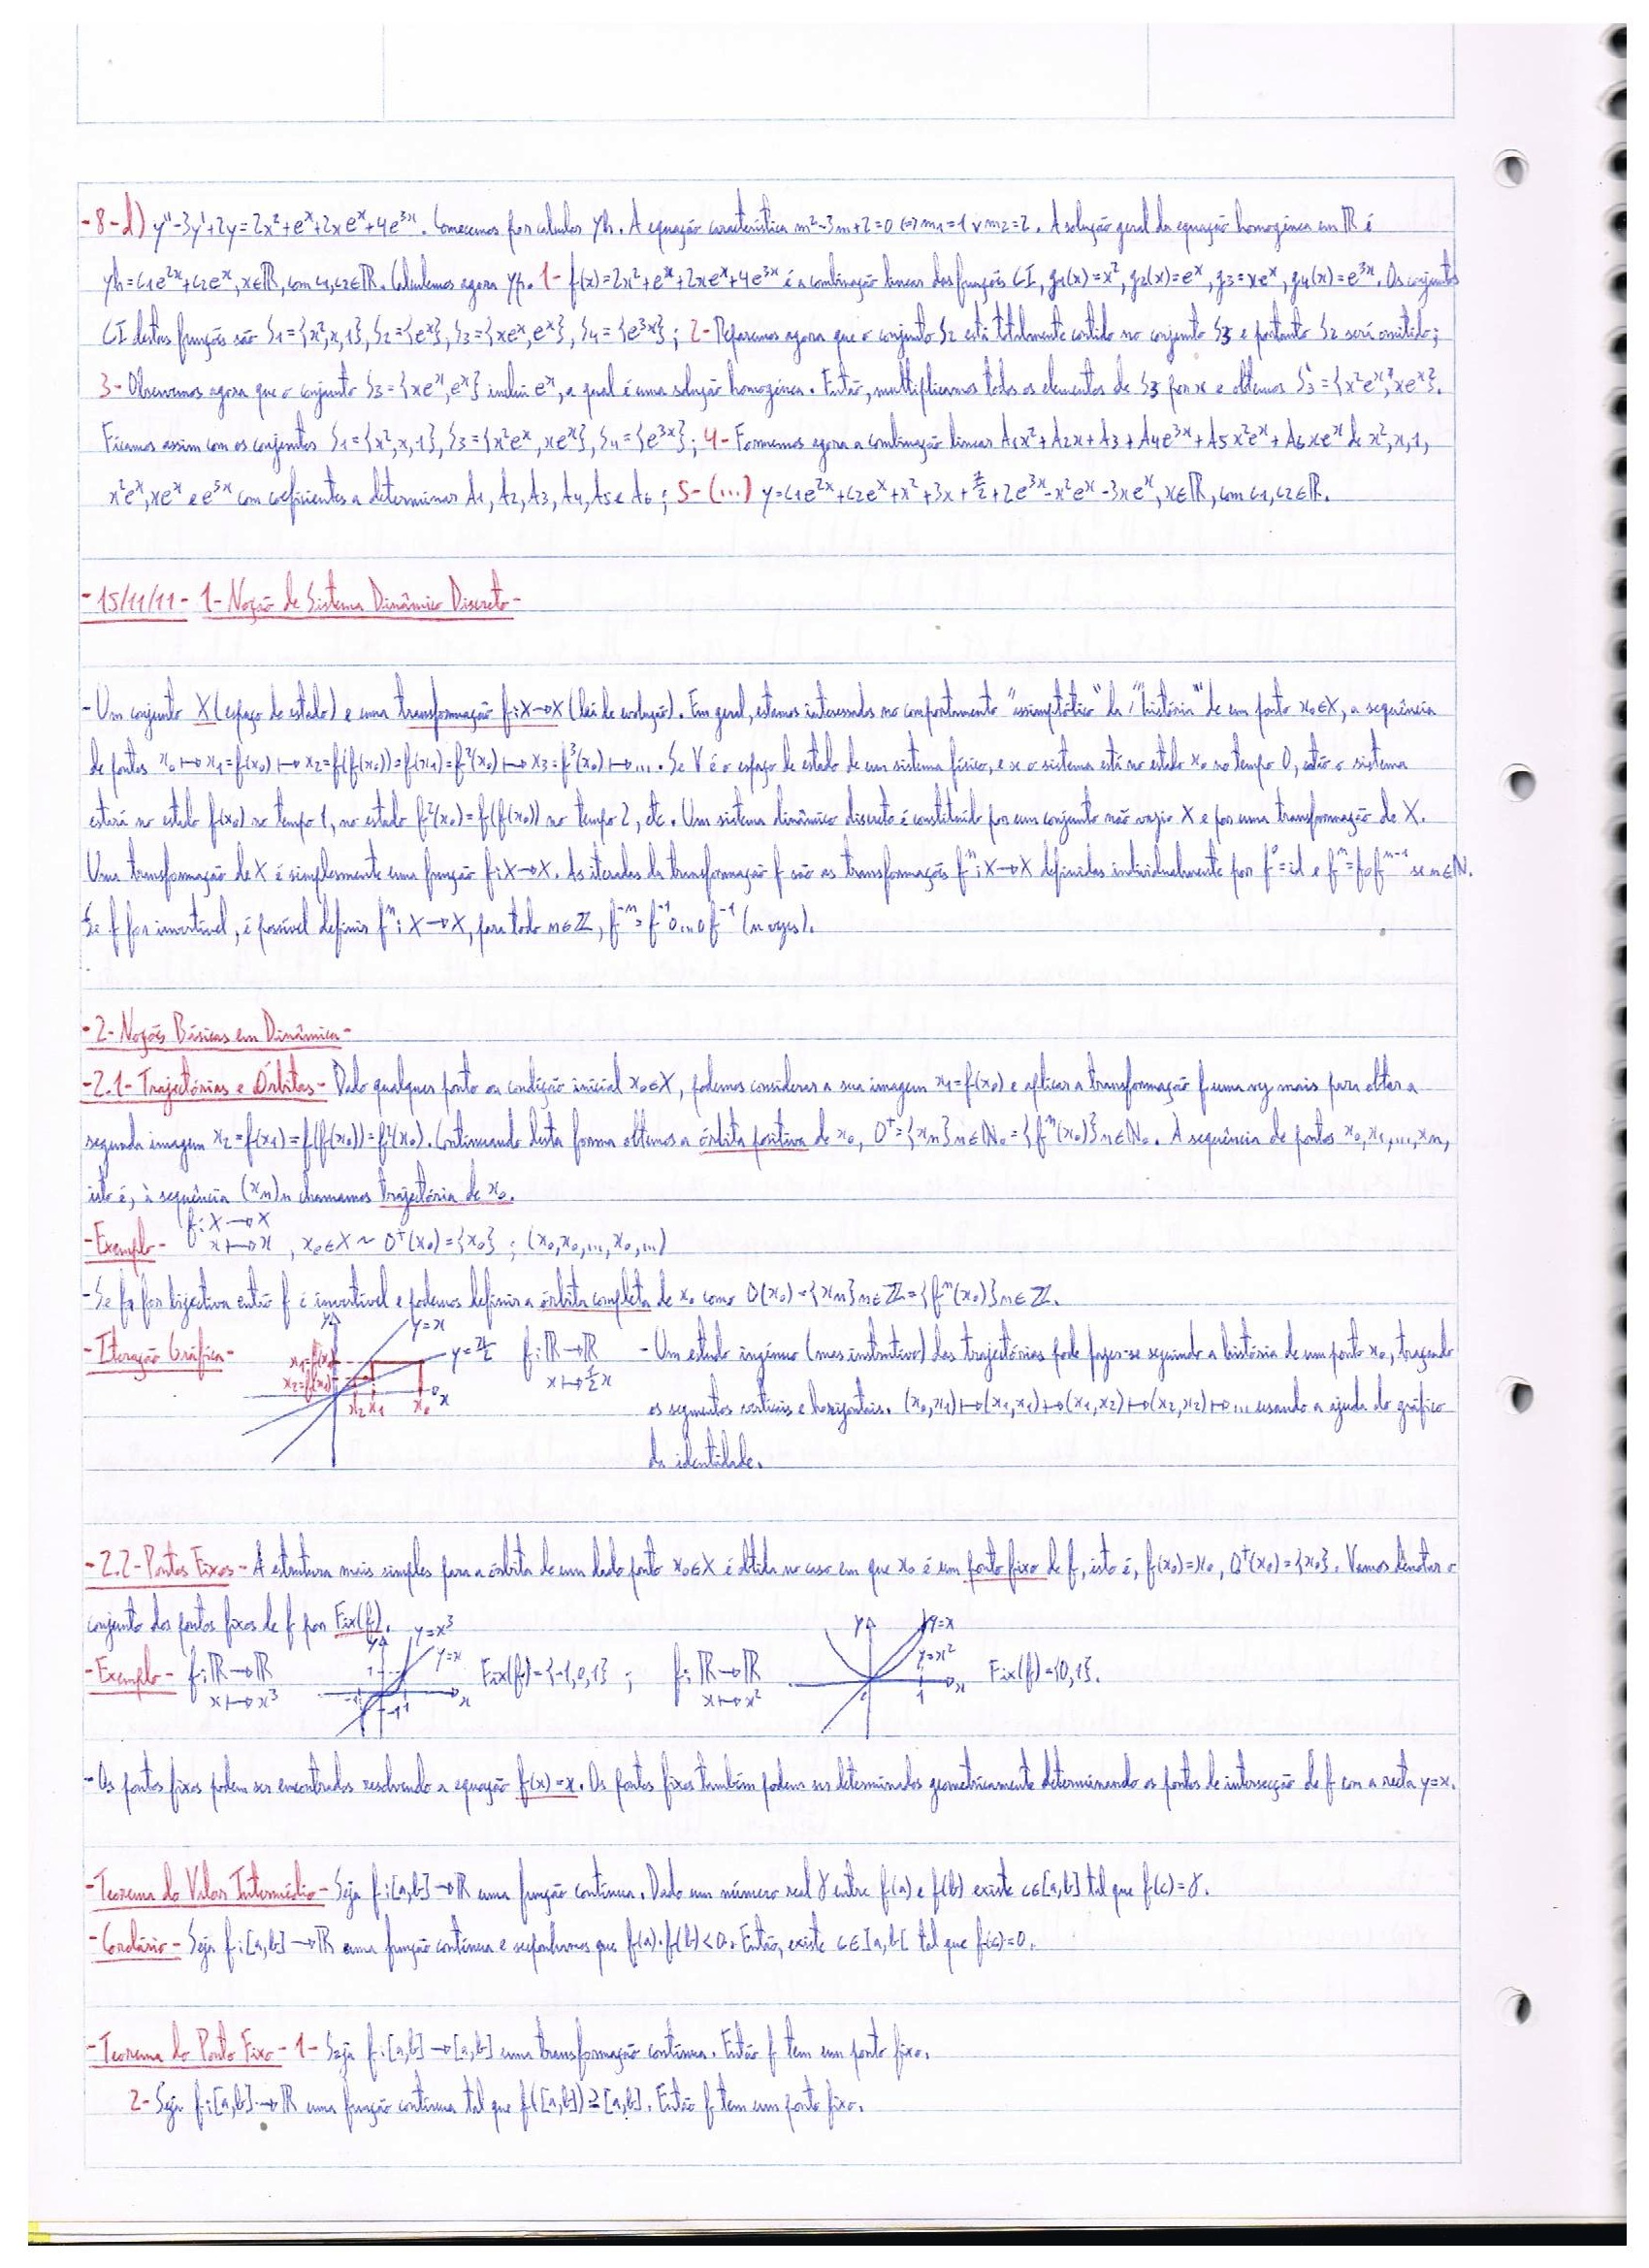 -8-d) y''-3y'+2y=2x²+eˣ+2xeˣ+4e³ˣ. Comecemos por calcular yh. A equação característica m²-3m+2=0 ⇔ m1=1 ∨ m2=2. A solução geral da equação homogénea em ℝ é
yh=c1e²ˣ+c2eˣ, x∈ℝ, com c1,c2∈ℝ. Calculemos agora yp. 1- f(x)=2x²+eˣ+2xeˣ+4e³ˣ é a combinação linear das funções CI, g1(x)=x², g2(x)=eˣ, g3=xeˣ, g4(x)=e³ˣ. Os conjuntos
CI destas funções são S1={x²,x,1}, S2={eˣ}, S3={xeˣ,eˣ}, S4={e³ˣ}; 2- Reparemos agora que o conjunto S2 está totalmente contido no conjunto S3 e portanto S2 será omitido;
3- Observemos agora que o conjunto S3={xeˣ,eˣ} inclui eˣ, a qual é uma solução homogénea. Então, multiplicamos todos os elementos de S3 por x e obtemos S3'={x²eˣ,xeˣ}.
Ficamos assim com os conjuntos S1={x²,x,1}, S3={x²eˣ,xeˣ}, S4={e³ˣ}; 4- Formemos agora a combinação linear A1x²+A2x+A3+A4e³ˣ+A5x²eˣ+A6xeˣ de x²,x,1,
x²eˣ,xeˣ e e³ˣ com coeficientes a determinar A1, A2, A3, A4, A5 e A6; 5- (...) y=c1e²ˣ+c2eˣ+x²+3x+7/2+2e³ˣ-x²eˣ-3xeˣ, x∈ℝ, com c1,c2∈ℝ.
-15/11/11- 1- Noção de Sistema Dinâmico Discreto-
- Um conjunto X (espaço de estado) e uma transformação f:X→X (lei de evolução). Em geral, estamos interessados no comportamento "assimptótico" da "história" de um ponto x0∈X, a sequência
de pontos x0↦x1=f(x0)↦x2=f(f(x0))=f(x1)=f²(x0)↦x3=f³(x0)↦... . Se V é o espaço de estado de um sistema físico, e se o sistema está no estado x0 no tempo 0, então o sistema
estará no estado f(x0) no tempo 1, no estado f²(x0)=f(f(x0)) no tempo 2, etc. Um sistema dinâmico discreto é constituído por um conjunto não vazio X e por uma transformação de X.
Uma transformação de X é simplesmente uma função f:X→X. As iteradas da transformação f são as transformações fⁿ:X→X definidas individualmente por f⁰=id e fⁿ=f∘fⁿ⁻¹ se n∈ℕ.
Se f for invertível, é possível definir fⁿ:X→X, para todo n∈ℤ, f⁻ⁿ=f⁻¹∘...∘f⁻¹ (n vezes).
-2- Noções Básicas em Dinâmica-
-2.1- Trajectórias e Órbitas- Dado qualquer ponto ou condição inicial x0∈X, podemos considerar a sua imagem x1=f(x0) e aplicar a transformação f uma vez mais para obter a
segunda imagem x2=f(x1)=f(f(x0))=f²(x0). Continuando desta forma obtemos a órbita positiva de x0, O⁺={xn}n∈ℕ0={fⁿ(x0)}n∈ℕ0. À sequência de pontos x0,x1,...,xn,
isto é, à sequência (xn)n chamamos trajectória de x0.
-Exemplo- f:X→X
x↦x , x0∈X ~ O⁺(x0)={x0} ; (x0,x0,...,x0,...)
-Se f for bijectiva então f é invertível e podemos definir a órbita completa de x0 como O(x0)={xn}n∈ℤ={fⁿ(x0)}n∈ℤ.
-Iteração Gráfica- y y=x
x1=f(x0) y=x/2 f:ℝ→ℝ - Um estudo ingénuo (mas instrutivo) das trajectórias pode fazer-se seguindo a história de um ponto x0, traçando
x2=f(x1) x x↦½x
x2 x1 x0 os segmentos verticais e horizontais. (x0,x1)↦(x1,x1)↦(x1,x2)↦(x2,x2)↦... usando a ajuda do gráfico
da identidade.
-2.2- Pontos Fixos- A estrutura mais simples para a órbita de um dado ponto x0∈X é obtida no caso em que x0 é um ponto fixo de f, isto é, f(x0)=x0, O⁺(x0)={x0}. Vamos denotar o
conjunto dos pontos fixos de f por Fix(f). y y=x³ y y=x
-Exemplo- f:ℝ→ℝ 1 y=x Fix(f)={-1,0,1} ; f:ℝ→ℝ y=x² Fix(f)={0,1}.
x↦x³ -1 1 x -1 x↦x² 1 x
-Os pontos fixos podem ser encontrados resolvendo a equação f(x)=x. Os pontos fixos também podem ser determinados geometricamente determinando os pontos de intersecção de f com a recta y=x.
-Teorema do Valor Intermédio- Seja f:[a,b]→ℝ uma função contínua. Dado um número real γ entre f(a) e f(b) existe c∈[a,b] tal que f(c)=γ.
-Corolário- Seja f:[a,b]→ℝ uma função contínua e suponhamos que f(a)·f(b)<0. Então, existe c∈]a,b[ tal que f(c)=0.
-Teorema do Ponto Fixo- 1- Seja f:[a,b]→[a,b] uma transformação contínua. Então f tem um ponto fixo.
2- Seja f:[a,b]→ℝ uma função contínua tal que f([a,b])⊇[a,b]. Então f tem um ponto fixo.